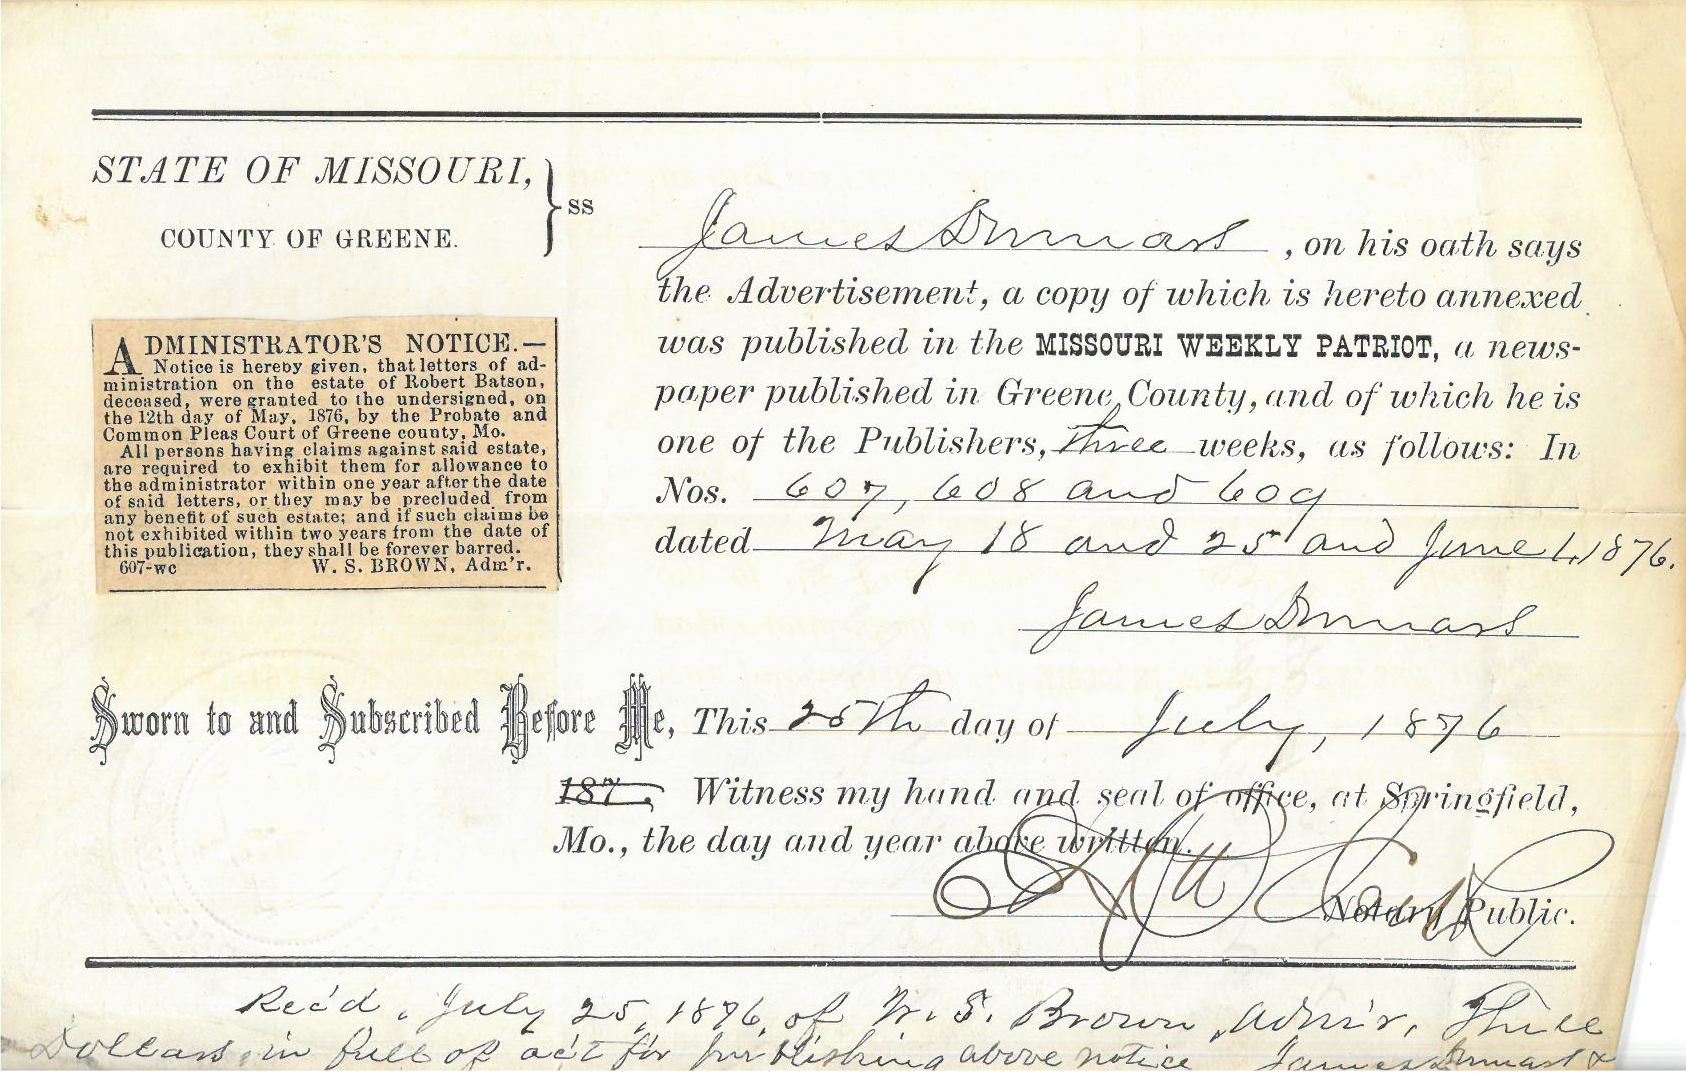 STATE OF MISSOURI,
COUNTY OF GREENE.
ss
James Dumars, on his oath says
the Advertisement, a copy of which is hereto annexed
was published in the MISSOURI WEEKLY PATRIOT, a news-
paper published in Greene County, and of which he is
one of the Publishers, three weeks, as follows: In
Nos. 607, 608 and 609
dated May 18 and 25 and June 1, 1876.
James Dumars
ADMINISTRATOR'S NOTICE.—
Notice is hereby given, that letters of ad-
ministration on the estate of Robert Batson,
deceased, were granted to the undersigned, on
the 12th day of May, 1876, by the Probate and
Common Pleas Court of Greene county, Mo.
All persons having claims against said estate,
are required to exhibit them for allowance to
the administrator within one year after the date
of said letters, or they may be precluded from
any benefit of such estate; and if such claims be
not exhibited within two years from the date of
this publication, they shall be forever barred.
607-wc W. S. BROWN, Adm'r.
Sworn to and Subscribed Before Me, This 25th day of July, 1876
187 , Witness my hand and seal of office, at Springfield,
Mo., the day and year above written.
Notary Public.
Rec'd, July 25, 1876, of W. S. Brown, Adm'r, Three
Dollars, in full of ac't for publishing above notice James Dumars &